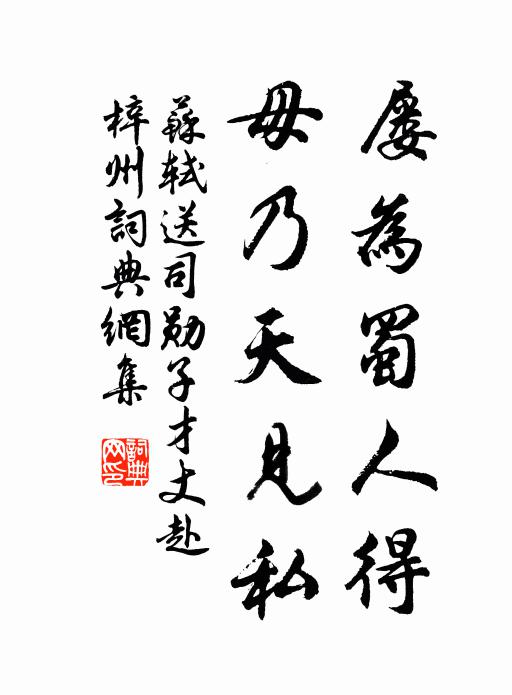 屢為蜀人得
毋乃天見私
蘇軾送司勛子才丈赴
梓州詞典網集
詞典
网印